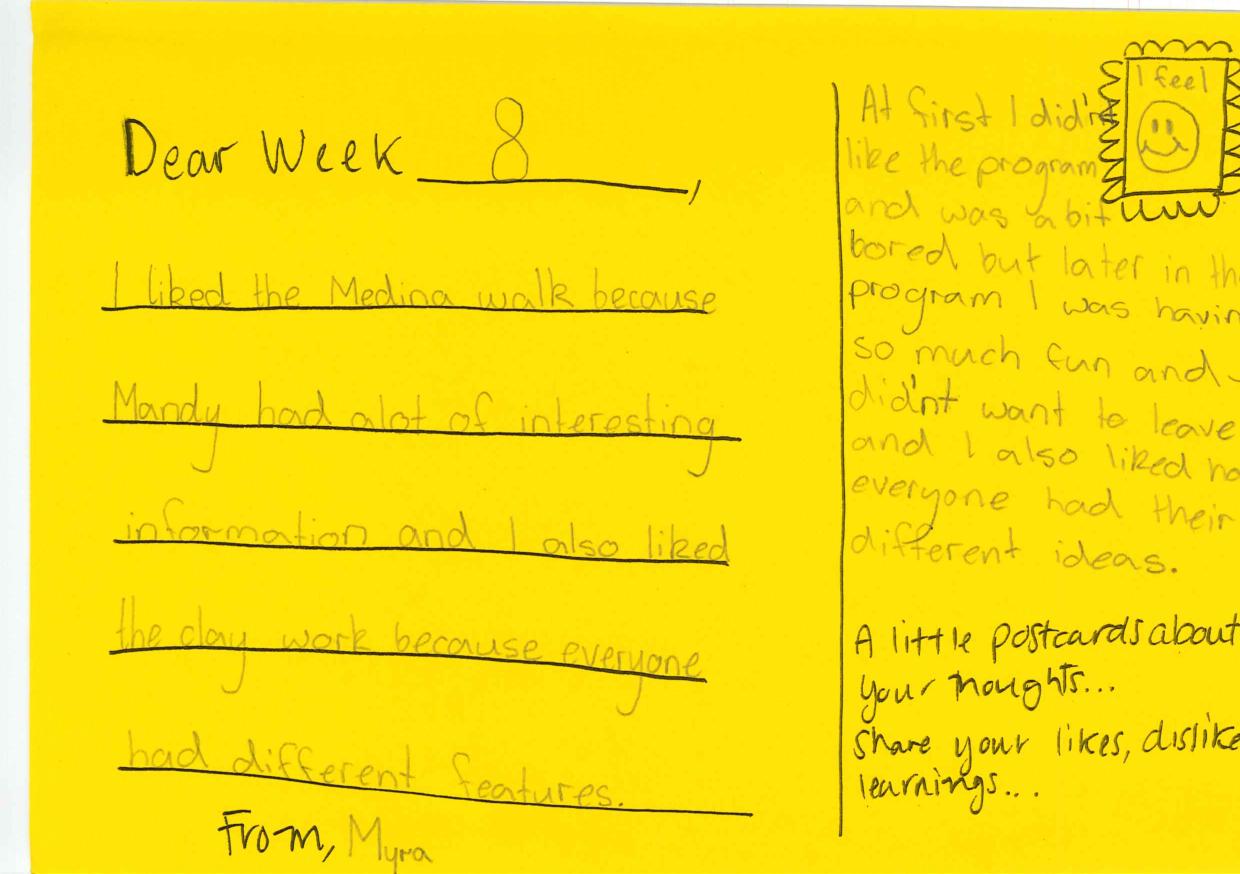 Dear Week 8,
I liked the Medina walk because
Mandy had alot of interesting
information and I also liked
the clay work because everyone
had different features.
From, Myra
I feel
At first I didn't
like the program
and was a bit
bored but later in th
program I was havin
so much fun and
didn't want to leave
and I also liked ho
everyone had their
different ideas.
A little postcards about
your thoughts...
Share your likes, dislike
learnings...